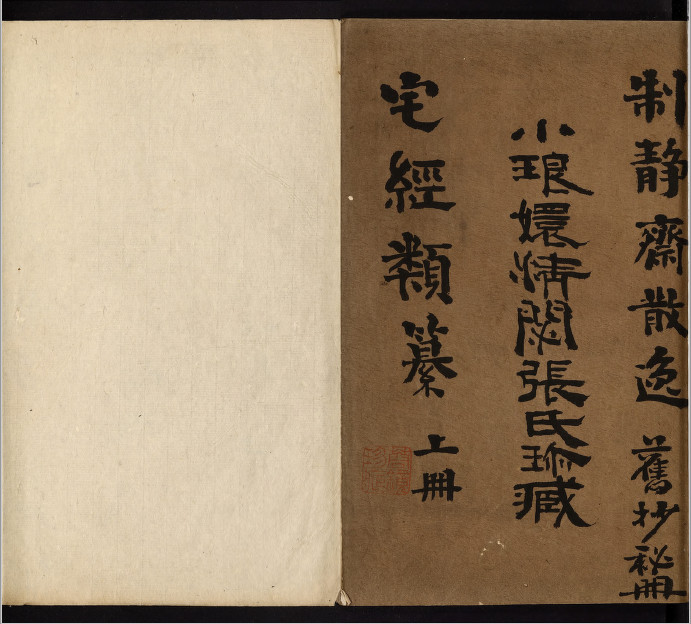 制静齋散逸 舊抄秘冊
小琅嬛清閟張氏珍臧
宅經類纂 上冊